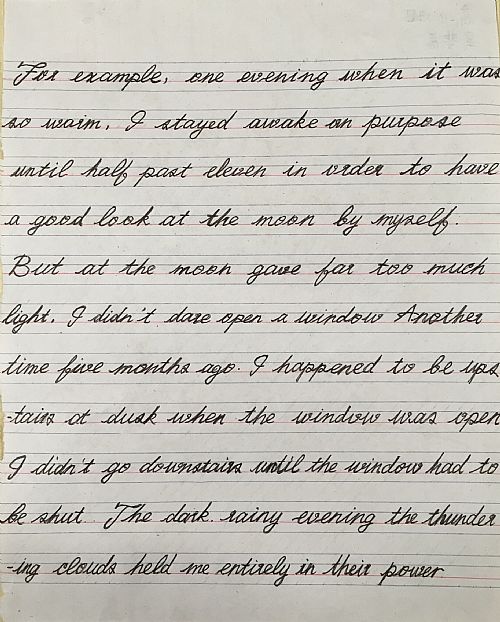 For example, one evening when it was
so warm, I stayed awake on purpose
until half past eleven in order to have
a good look at the moon by myself.
But at the moon gave far too much
light, I didn't dare open a window Another
time five months ago. I happened to be ups
-tairs at dusk when the window was open
I didn't go downstairs until the window had to
be shut. The dark. rainy evening the thunder
-ing clouds held me entirely in their power.